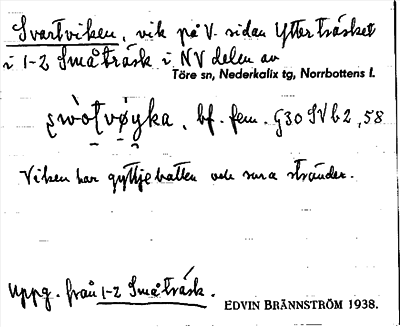 Svartviken, vik på V. sidan Ytterträsket
i 1-2 Småträsk i NV delen av
Töre sn, Nederkalix tg, Norrbottens l.
bf. fem. G30 SV b 2, 58
Viken har gyttjebotten och sura stränder.
Uppg. från 1-2 Småträsk.
EDVIN BRÄNNSTRÖM 1938.